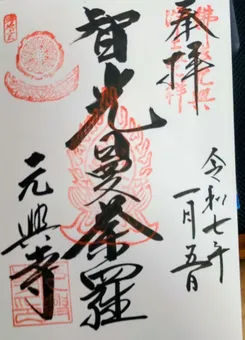 奉拝
令和七年
一月五日
智光曼荼羅
元興寺